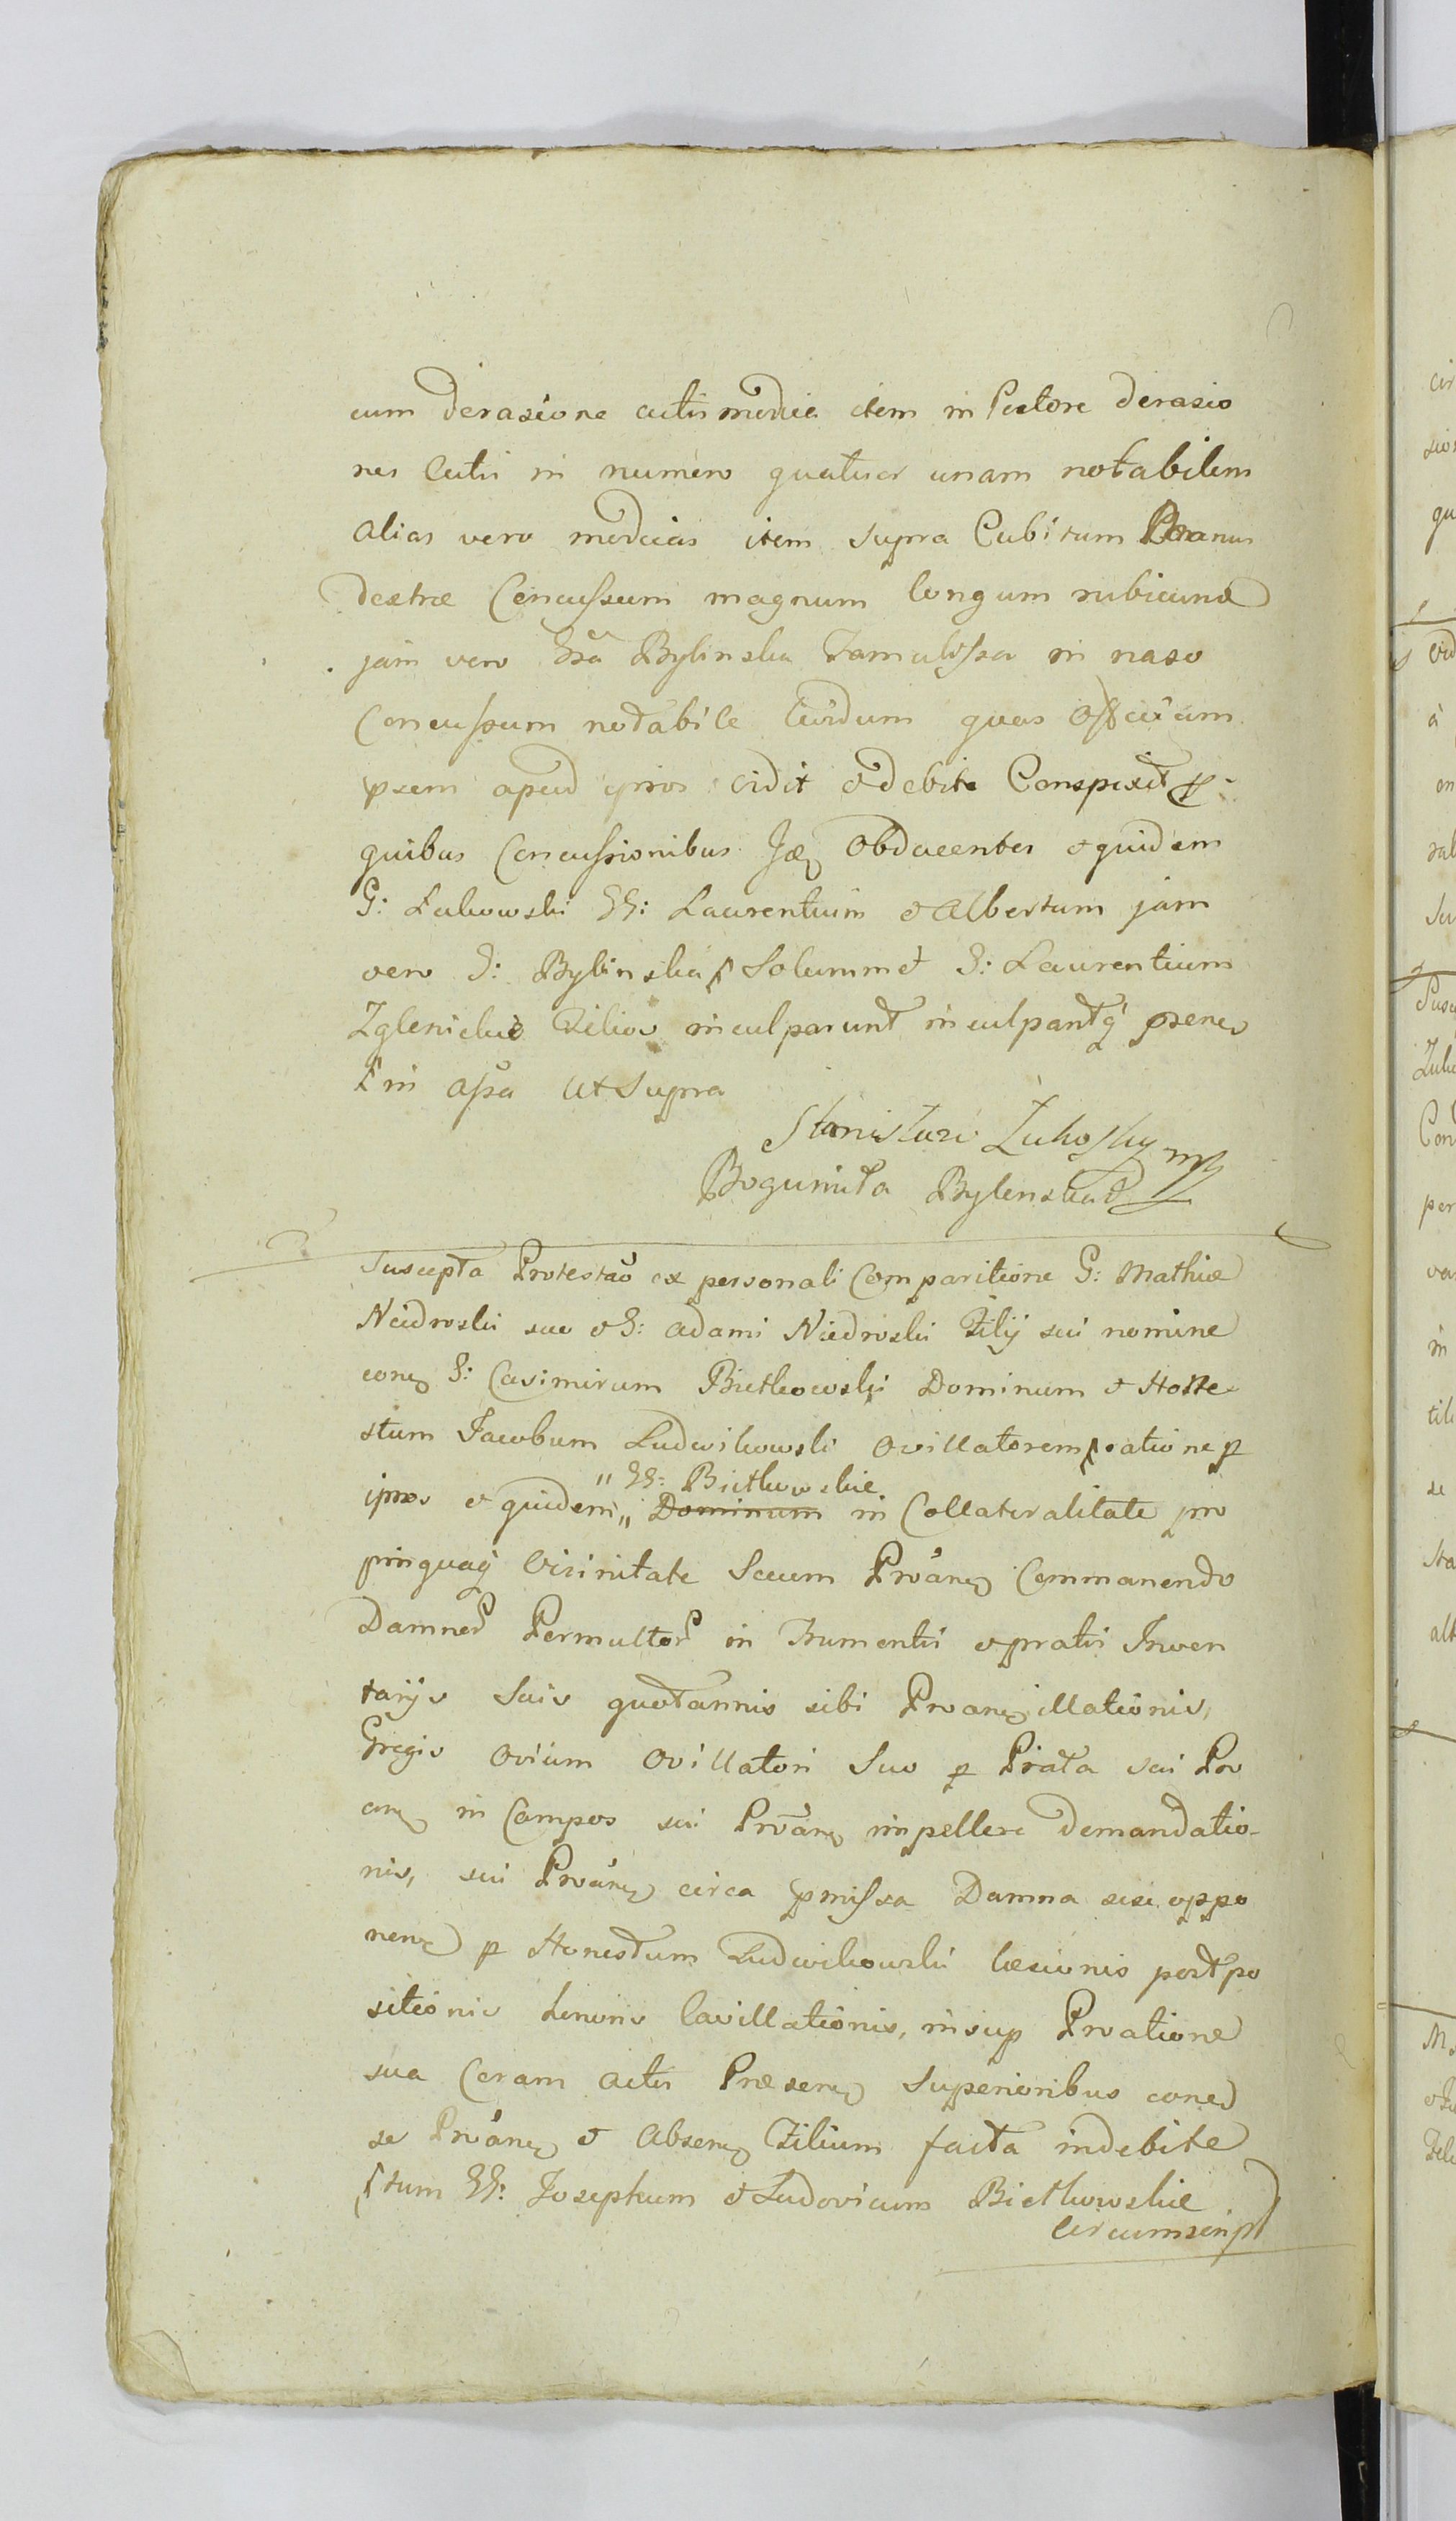 cum Derasione cutis modica item in Pectore Derasio
nes Cutis in numero quatuor unam notabilem
alias vero modicas item supra Cubitum Manus
Dextræ Concussum magnum longum rubicund
jam vero Bylinska Famulissa in naso
Concussum notabile lividum quas officium
psem apud ipsos vidit et debite Conspexit p
quibus Concussionibus Obducentes et quidem
G: Żukowski GG: Laurentium et Albertum jam
vero G: Bylinska Solummet G: Laurentium
Zglenickie Filios inculparunt inculpantq præsens
in assa ut supra
Stanisław Żukoski mp
Bogumiła Bylenska
Suscepta Protestao ex personali Comparitione G: Mathiæ
Niedroski suo et G: Adami Niedroski Filij sui nomine
con G: Casimirum Bietkowski Dominum et Hone
stum Jacobum Ludwikowski Ovillatorem ratione p
" GG: Bietkowskie
ipsos et quidem " Dominum in Collateralitate pro
pinquaq Vicinitate Secum Proan Commanendo
Damnor Permultor in Frumentis et pratis Inven
tarijs Suis quotannis sibi Proan illationis,
Gregis Ovium Ovillatori Suo p Prata sui Pro
an in Campos sui Proan impellere demandatio-
nis, sui Proan circa pmissa Damna sese oppo
nen p Honestum Ludwikowski læsionis postpo
sitionis honoris Cavillationis, insup Proatione
sua Coram actis Præsen Superioribus con
se Proan et Absen Filium facta indebite
tum GG: Josephum et Ludovicum Bietkowskie
circumscript